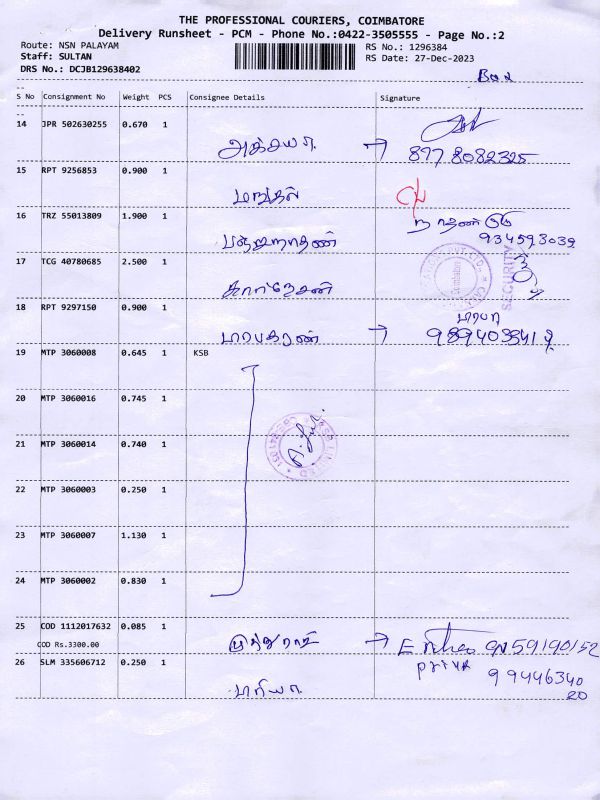 THE PROFESSIONAL COURIERS, COIMBATORE
Delivery Runsheet - PCM - Phone No.:0422-3505555 - Page No.:2
Route: NSN PALAYAM RS No.: 1296384
Staff: SULTAN RS Date: 27-Dec-2023
DRS No.: DCJB129638402
S No Consignment No Weight PCS Consignee Details Signature
14 JPR 502630255 0.670 1
அக்சயா. → 877 8082325
15 RPT 9256853 0.900 1
16 TRZ 55013809 1.900 1
934593039
17 TCG 40780685 2.500 1
Coimbatore
SECURITY
18 RPT 9297150 0.900 1
பிரபா
பிரபகரன் →
19 MTP 3060008 0.645 1 KSB
20 MTP 3060016 0.745 1
21 MTP 3060014 0.740 1
22 MTP 3060003 0.250 1
23 MTP 3060007 1.130 1
24 MTP 3060002 0.830 1
25 COD 1112017632 0.085 1
COD Rs.3300.00
முத்துராஜ் →
26 SLM 335606712 0.250 1
priya 99446340
20
பிரியா.